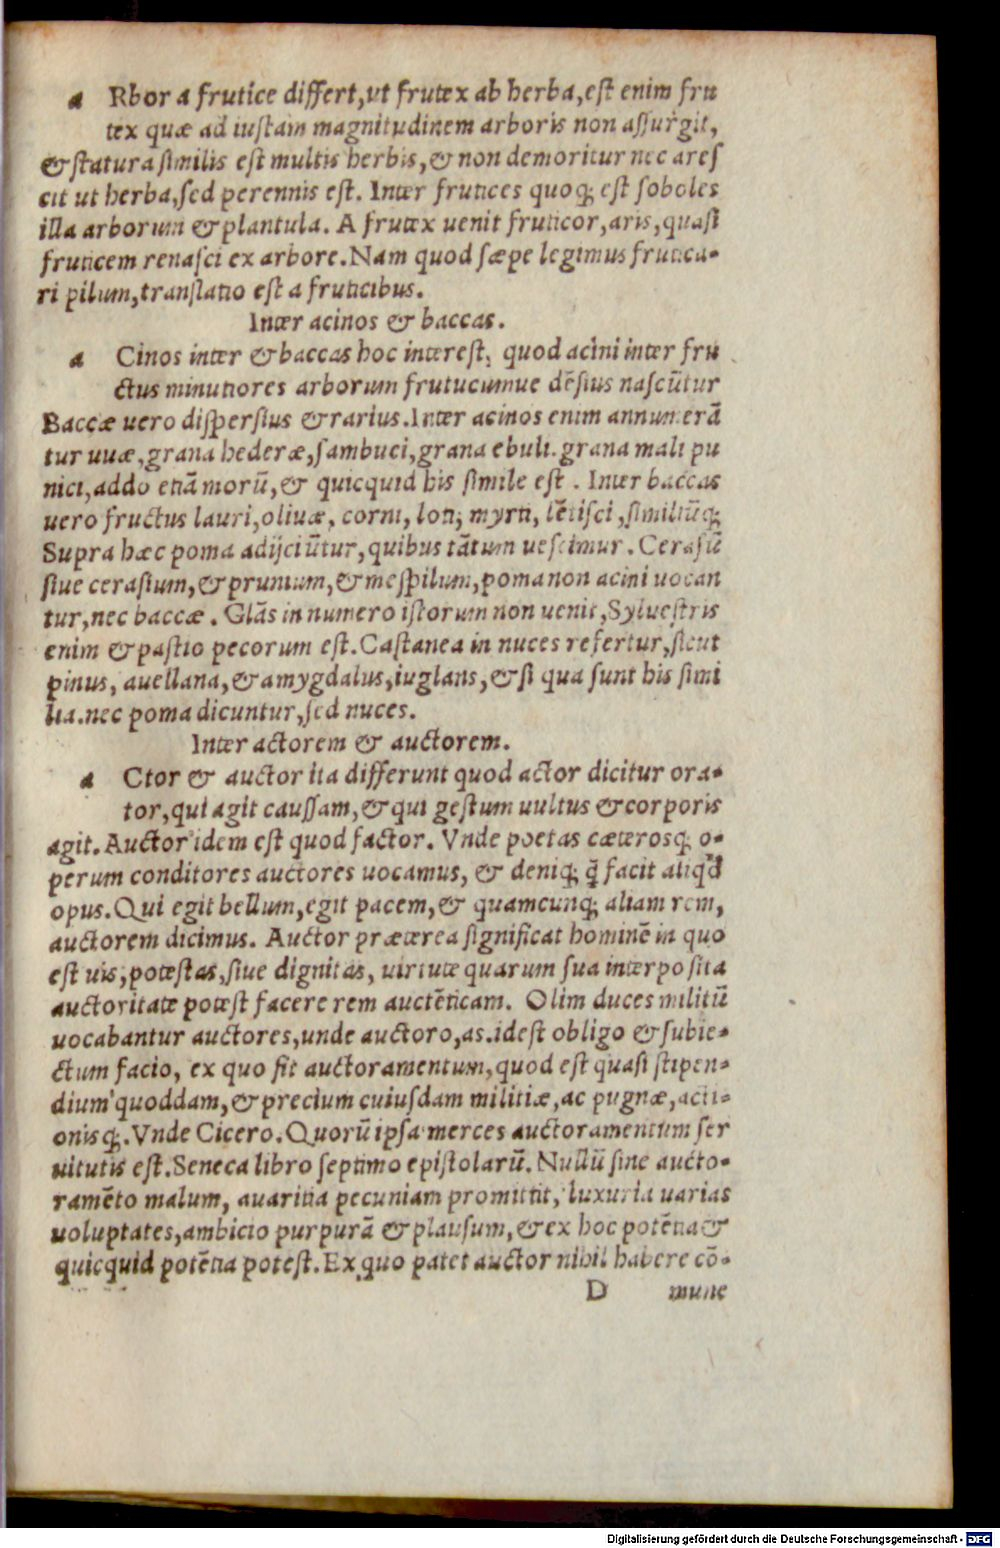 a Rbor a frutice differt,ut frutex ab herba,est enim fru
tex quæ ad iustam magnitudinem arboris non assurgit,
& statura similis est multis herbis,& non demoritur nec ares
cit ut herba,sed perennis est. Inter frutices quoq; est soboles
illa arborum & plantula. A frutex uenit fruticor,aris,quasi
fruticem renasci ex arbore.Nam quod sæpe legimus frutica-
ri pilum,translatio est a fruticibus.
Inter acinos & baccas.
a Cinos inter & baccas hoc interest, quod acini inter fru
ctus minutiores arborum frutucumue dēsius nascūtur
Baccæ uero dispersius & rarius.Inter acinos enim annumerā
tur uuæ,grana hederæ,sambuci,grana ebuli.grana mali pu
nici,addo etiā morū,& quicquid his simile est . Inter baccas
uero fructus lauri,oliuæ, corni, loti, myrti, lētisci,similiūq;
Supra hæc poma adijciūtur,quibus tātum uescimur. Cerasiū
siue cerasium,& prunum,& mespilum,poma non acini uocan
tur,nec baccæ . Glās in numero istorum non uenit,Syluestris
enim & pastio pecorum est.Castanea in nuces refertur,sicut
pinus, auellana,& amygdalus,iuglans,& si qua sunt his simi
lia.nec poma dicuntur,sed nuces.
Inter actorem & auctorem.
a Ctor & auctor ita differunt quod actor dicitur ora-
tor,qui agit caussam,& qui gestum uultus & corporis
agit. Auctor idem est quod factor. Vnde poetas cæterosq; o-
perum conditores auctores uocamus, & deniq; q̄ facit aliq'd
opus.Qui egit bellum,egit pacem,& quamcunq; aliam rem,
auctorem dicimus. Auctor præterea significat hominē in quo
est uis,potestas,siue dignitas, uirtute quarum sua interposita
auctoritate potest facere rem auctēticam. Olim duces militū
uocabantur auctores,unde auctoro,as.idest obligo & subie-
ctum facio, ex quo fit auctoramentum,quod est quasi stipen-
dium quoddam,& precium cuiusdam militiæ,ac pugnæ,acti-
onisq;.Vnde Cicero.Quorū ipsa merces auctoramentum ser
uitutis est.Seneca libro septimo epistolarū. Nullū sine aucto-
ramēto malum, auaritia pecuniam promittit, luxuria uarias
uoluptates,ambicio purpurā & plausum,& ex hoc potētia &
quicquid potētia potest.Ex quo patet auctor nihil habere cō-
D mune
Digitalisierung gefördert durch die Deutsche Forschungsgemeinschaft - DFG